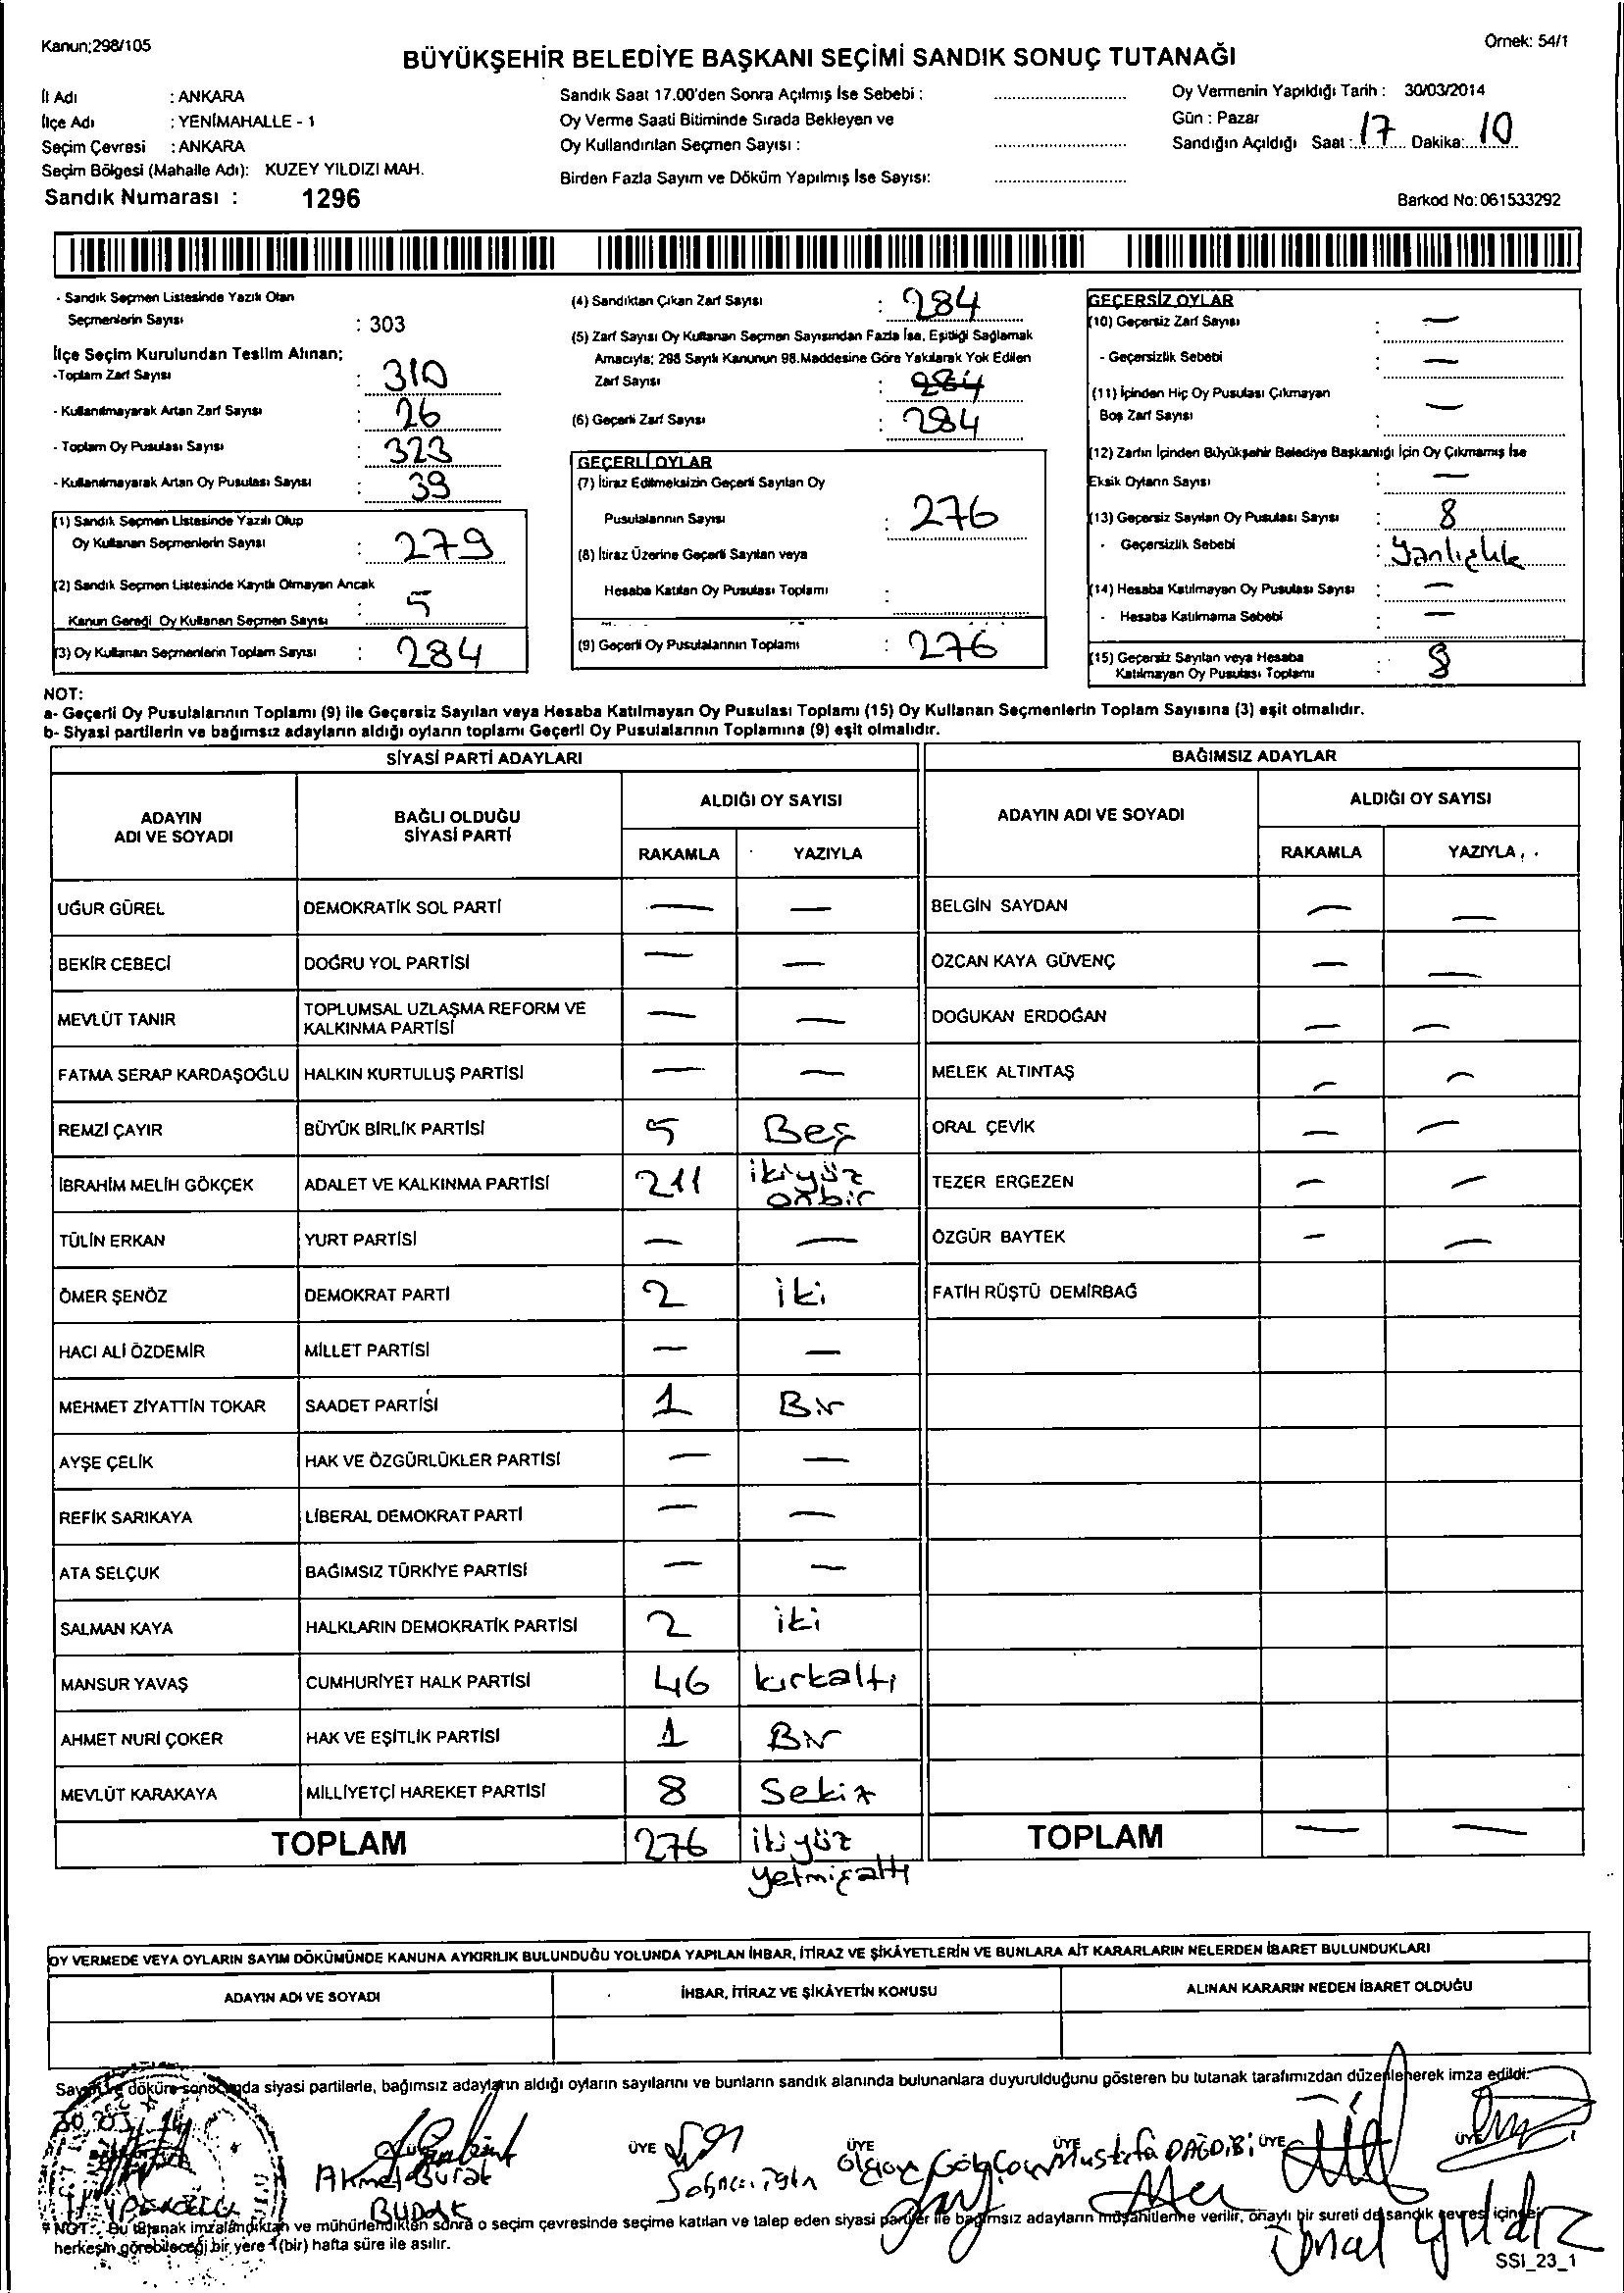 Kanun;298/105
Örnek: 54/1
BÜYÜKŞEHİR BELEDİYE BAŞKANI SEÇİMİ SANDIK SONUÇ TUTANAĞI
İl Adı : ANKARA
İlçe Adı : YENİMAHALLE - 1
Seçim Çevresi : ANKARA
Seçim Bölgesi (Mahalle Adı): KUZEY YILDIZI MAH.
Sandık Numarası : 1296
Sandık Saat 17.00'den Sonra Açılmış İse Sebebi :
Oy Verme Saati Bitiminde Sırada Bekleyen ve
Oy Kullandırılan Seçmen Sayısı :
Birden Fazla Sayım ve Döküm Yapılmış İse Sayısı:
Oy Vermenin Yapıldığı Tarih : 30/03/2014
Gün : Pazar
Sandığın Açıldığı Saat : 17 Dakika: 10
Barkod No: 061533292
- Sandık Seçmen Listesinde Yazılı Olan
Seçmenlerin Sayısı : 303
İlçe Seçim Kurulundan Teslim Alınan;
-Toplam Zarf Sayısı : 310
- Kullanılmayarak Artan Zarf Sayısı : 26
- Toplam Oy Pusulası Sayısı : 323
- Kullanılmayarak Artan Oy Pusulası Sayısı : 39
(1) Sandık Seçmen Listesinde Yazılı Olup
Oy Kullanan Seçmenlerin Sayısı : 279
(2) Sandık Seçmen Listesinde Kayıtlı Olmayan Ancak
Kanun Gereği Oy Kullanan Seçmen Sayısı : 5
(3) Oy Kullanan Seçmenlerin Toplam Sayısı : 284
(4) Sandıktan Çıkan Zarf Sayısı : 284
(5) Zarf Sayısı Oy Kullanan Seçmen Sayısından Fazla İse, Eşitliği Sağlamak
Amacıyla; 298 Sayılı Kanunun 98.Maddesine Göre Yakılarak Yok Edilen
Zarf Sayısı : 284
(6) Geçerli Zarf Sayısı : 284
GEÇERLİ OYLAR
(7) İtiraz Edilmeksizin Geçerli Sayılan Oy
Pusulalarının Sayısı : 276
(8) İtiraz Üzerine Geçerli Sayılan veya
Hesaba Katılan Oy Pusulası Toplamı :
(9) Geçerli Oy Pusulalarının Toplamı : 276
GEÇERSİZ OYLAR
(10) Geçersiz Zarf Sayısı : —
- Geçersizlik Sebebi : —
(11) İçinden Hiç Oy Pusulası Çıkmayan
Boş Zarf Sayısı : —
(12) Zarfın İçinden Büyükşehir Belediye Başkanlığı İçin Oy Çıkmamış İse
Eksik Oyların Sayısı : —
(13) Geçersiz Sayılan Oy Pusulası Sayısı : 8
- Geçersizlik Sebebi : Yanlışlık
(14) Hesaba Katılmayan Oy Pusulası Sayısı : —
- Hesaba Katılmama Sebebi : —
(15) Geçersiz Sayılan veya Hesaba
Katılmayan Oy Pusulası Toplamı : 8
NOT:
a- Geçerli Oy Pusulalarının Toplamı (9) ile Geçersiz Sayılan veya Hesaba Katılmayan Oy Pusulası Toplamı (15) Oy Kullanan Seçmenlerin Toplam Sayısına (3) eşit olmalıdır.
b- Siyasi partilerin ve bağımsız adayların aldığı oyların toplamı Geçerli Oy Pusulalarının Toplamına (9) eşit olmalıdır.
SİYASİ PARTİ ADAYLARI
ADAYIN
ADI VE SOYADI
BAĞLI OLDUĞU
SİYASİ PARTİ
ALDIĞI OY SAYISI
RAKAMLA YAZIYLA
UĞUR GÜREL DEMOKRATİK SOL PARTİ — —
BEKİR CEBECİ DOĞRU YOL PARTİSİ — —
MEVLÜT TANIR TOPLUMSAL UZLAŞMA REFORM VE
KALKINMA PARTİSİ — —
FATMA SERAP KARDAŞOĞLU HALKIN KURTULUŞ PARTİSİ — —
REMZİ ÇAYIR BÜYÜK BİRLİK PARTİSİ 5 Beş
İBRAHİM MELİH GÖKÇEK ADALET VE KALKINMA PARTİSİ 211 ikiyüz
onbir
TÜLİN ERKAN YURT PARTİSİ — —
ÖMER ŞENÖZ DEMOKRAT PARTİ 2 iki
HACI ALİ ÖZDEMİR MİLLET PARTİSİ — —
MEHMET ZİYATTİN TOKAR SAADET PARTİSİ 1 Bir
AYŞE ÇELİK HAK VE ÖZGÜRLÜKLER PARTİSİ — —
REFİK SARIKAYA LİBERAL DEMOKRAT PARTİ — —
ATA SELÇUK BAĞIMSIZ TÜRKİYE PARTİSİ — —
SALMAN KAYA HALKLARIN DEMOKRATİK PARTİSİ 2 iki
MANSUR YAVAŞ CUMHURİYET HALK PARTİSİ 46 kırkaltı
AHMET NURİ ÇOKER HAK VE EŞİTLİK PARTİSİ 1 Bir
MEVLÜT KARAKAYA MİLLİYETÇİ HAREKET PARTİSİ 8 Sekiz
TOPLAM 276 ikiyüz
yetmişaltı
BAĞIMSIZ ADAYLAR
ADAYIN ADI VE SOYADI
ALDIĞI OY SAYISI
RAKAMLA YAZIYLA
BELGİN SAYDAN — —
ÖZCAN KAYA GÜVENÇ — —
DOĞUKAN ERDOĞAN — —
MELEK ALTINTAŞ — —
ORAL ÇEVİK — —
TEZER ERGEZEN — —
ÖZGÜR BAYTEK — —
FATİH RÜŞTÜ DEMİRBAĞ
TOPLAM — —
OY VERMEDE VEYA OYLARIN SAYIM DÖKÜMÜNDE KANUNA AYKIRILIK BULUNDUĞU YOLUNDA YAPILAN İHBAR, İTİRAZ VE ŞİKÂYETLERİN VE BUNLARA AİT KARARLARIN NELERDEN İBARET BULUNDUKLARI
ADAYIN ADI VE SOYADI
İHBAR, İTİRAZ VE ŞİKÂYETİN KONUSU
ALINAN KARARIN NEDEN İBARET OLDUĞU
Sayım ve döküm sonucunda siyasi partilerle, bağımsız adayların aldığı oyların sayılarını ve bunların sandık alanında bulunanlara duyurulduğunu gösteren bu tutanak tarafımızdan düzenlenerek imza edildi.
Ahmet Burak
BUDAK
ÜYE
ÜYE
ÜYE Mustafa DAĞDİBİ
ÜYE
ÜYE
Ünal Yıldız
NOT: Bu tutanak imzalandıktan ve mühürlendikten sonra o seçim çevresinde seçime katılan ve talep eden siyasi partiler ile bağımsız adayların müşahitlerine verilir, onaylı bir sureti de sandık çevresi içinde
herkesin görebileceği bir yere 1 (bir) hafta süre ile asılır.
SSI_23_1